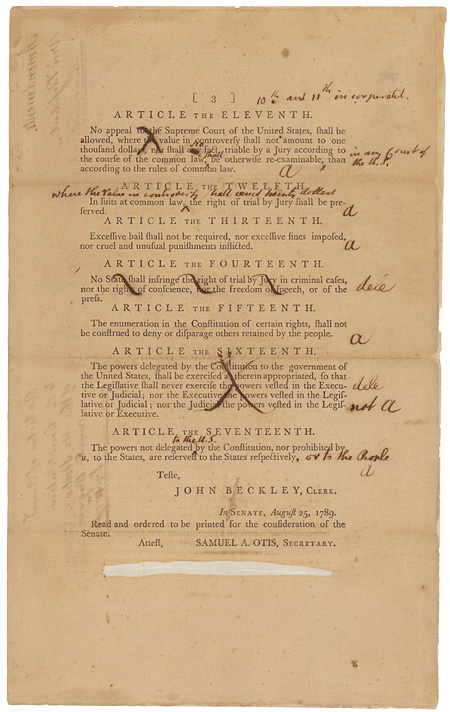 [ 3 ]
10th and 11th incorporated.
ARTICLE THE ELEVENTH.
No appeal to the Supreme Court of the United States, ſhall be
allowed, where the value in controverſy ſhall not amount to one
thouſand dollars, nor ſhall any fact, triable by a Jury according to
the courſe of the common law, be otherwiſe re-examinable, than
in any Court of
the U.S.
according to the rules of common law.
a
ARTICLE THE TWELFTH.
where the Value in controversy shall exceed twenty dollars
In ſuits at common law, the right of trial by Jury ſhall be pre-
ſerved.
a
ARTICLE THE THIRTEENTH.
Exceſſive bail ſhall not be required, nor exceſſive fines impoſed,
nor cruel and unuſual puniſhments inflicted.
a
ARTICLE THE FOURTEENTH.
No State ſhall infringe the right of trial by Jury in criminal caſes,
nor the right of conſcience, nor the freedom of ſpeech, or of the
dele
preſs.
ARTICLE THE FIFTEENTH.
The enumeration in the Conſtitution of certain rights, ſhall not
be conſtrued to deny or diſparage others retained by the people.
a
ARTICLE THE SIXTEENTH.
The powers delegated by the Conſtitution to the government of
the United States, ſhall be exerciſed as therein appropriated, ſo that
the Legiſlative ſhall never exerciſe the powers veſted in the Execu-
tive or Judicial; nor the Executive the powers veſted in the Legiſ-
dele
lative or Judicial; nor the Judicial the powers veſted in the Legiſ-
not a
lative or Executive.
ARTICLE THE SEVENTEENTH.
to the U.S.
The powers not delegated by the Conſtitution, nor prohibited by
it, to the States, are reſerved to the States reſpectively, or to the People
a
Teſte,
JOHN BECKLEY, CLERK.
In SENATE, Auguſt 25, 1789.
Read and ordered to be printed for the conſideration of the
Senate.
Atteſt, SAMUEL A. OTIS, SECRETARY.